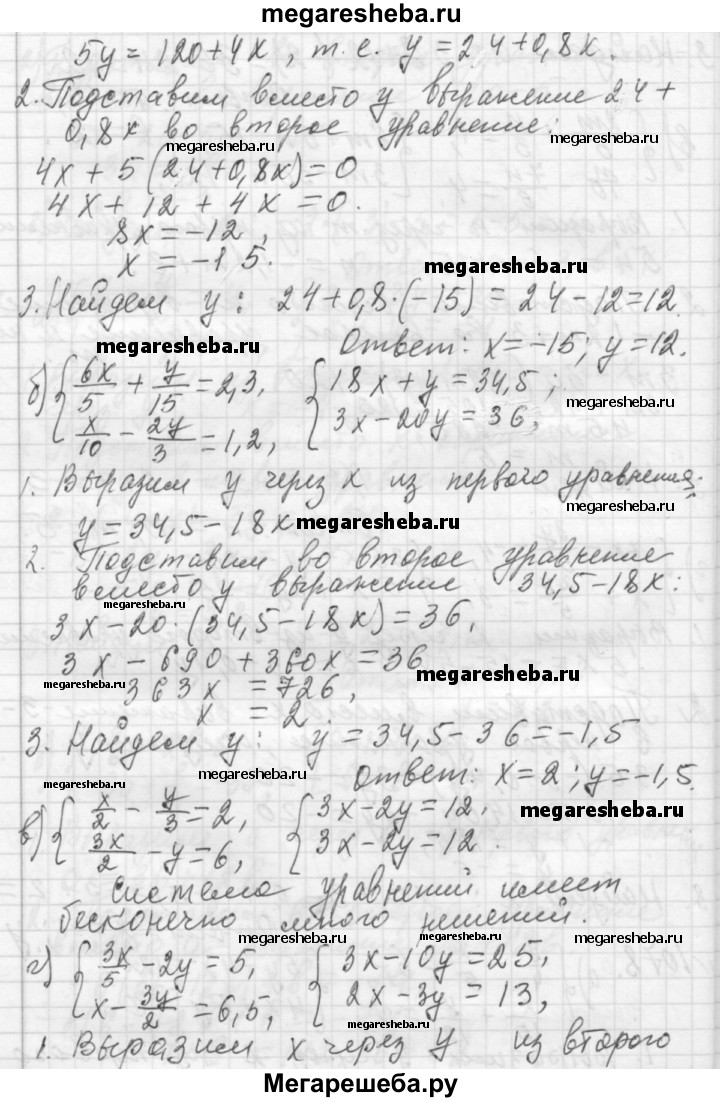 megaresheba.ru
5y = 120 + 4x, т. е. y = 24 + 0,8x.
2. Подставим вместо y выражение 24 +
0,8x во второе уравнение:
megaresheba.ru
4x + 5(24 + 0,8x) = 0
4x + 12 + 4x = 0.
8x = -12,
x = -15.
megaresheba.ru
3. Найдем y: 24 + 0,8·(-15) = 24 - 12 = 12.
megaresheba.ru
Ответ: x = -15; y = 12.
б) { 6x/5 + y/15 = 2,3, { 18x + y = 34,5;
megaresheba.ru
x/10 - 2y/3 = 1,2, 3x - 20y = 36,
1. Выразим y через x из первого уравнения:
megaresheba.ru
y = 34,5 - 18x megaresheba.ru
2. Подставим во второе уравнение
вместо y выражение 34,5 - 18x:
megaresheba.ru megaresheba.ru
3x - 20·(34,5 - 18x) = 36,
3x - 690 + 360x = 36
megaresheba.ru megaresheba.ru
363x = 726,
x = 2
3. Найдем y: y = 34,5 - 36 = -1,5
megaresheba.ru megaresheba.ru
Ответ: x = 2; y = -1,5.
в) { x/2 - y/3 = 2, { 3x - 2y = 12,
megaresheba.ru
3x/2 - y = 6, 3x - 2y = 12.
Система уравнений имеет
бесконечно много решений.
megaresheba.ru megaresheba.ru megaresheba.ru
г) { 3x/5 - 2y = 5, { 3x - 10y = 25,
x - 3y/2 = 6,5, 2x - 3y = 13,
megaresheba.ru megaresheba.ru
1. Выразим x через y из второго
Мегарешеба.ру